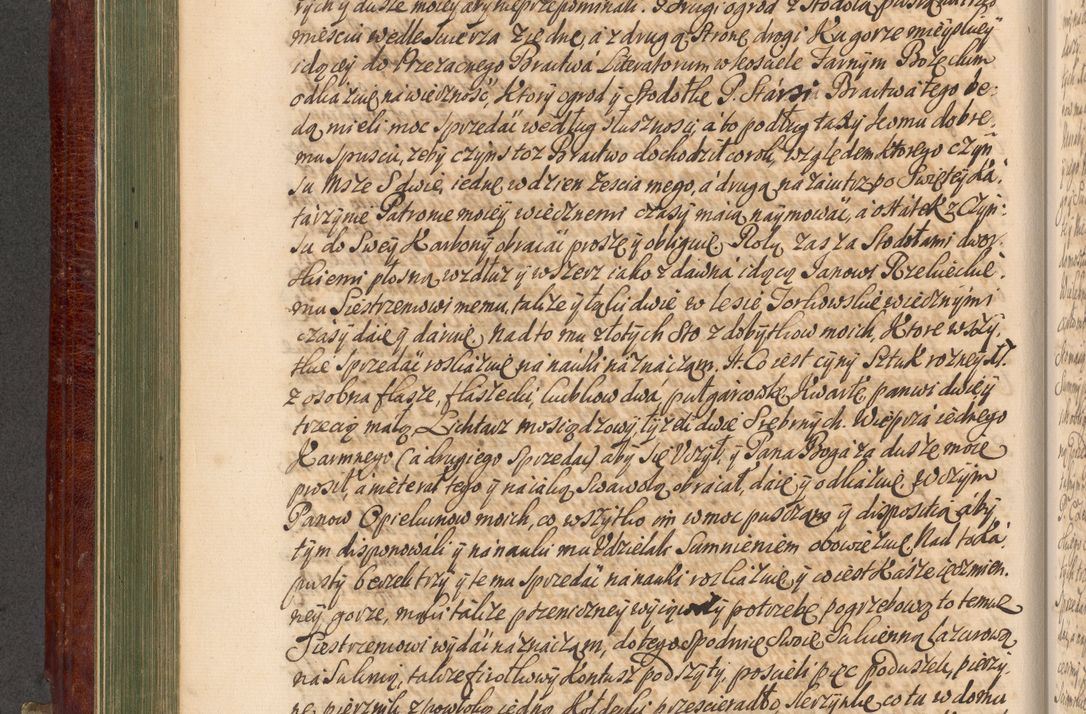 rych y duszę moię aby nieprzepominali. Drugi ogrod z Stodołą pusta
mieściu wedle Swierza z iedne, a z drugą Stronę drogi Ku gorze mieyskiey
idącey do Przezacnego Bractwa Literatorum w kościele Farnym Bożęckim
odkazuię na wieczność, Ktory ogrod y Stodołkę P. Starsi Bractwa tego be-
dą mieli moc Sprzedać według Słuszności, a to podług taxy Komu dobre-
mu spuscić, żeby czynsz toż Bractwo dochodził co rok, względem ktorego czyn
szu Msze S. dwie, iednę w dzien ześcia mego, a drugą na zaiutrz po Swiętey Ka-
tarzynie Patronie moiey wiecznemi czasy maią naymować, a ostatek z Czyn-
szu do Swey Karbony obracać proszę y obliguię. Rolą zaś za Stodołami dwor-
skiemi płosną wzdłuż y wszerz iako z dawna idącą Janowi Rzelueckie-
mu Siestrzenowi memu, także y łąki dwie w lesie Torkowskie wiecznymi
czasy daię y daruię. Nadto mu złotych Sto z dobytkow moich, Ktore wszy-
tkie Sprzedać roskazuię na nauki naznaczam. A Co iest cyny Sztuk rozney
z osobna flasze, flaszecki, kubkow dwa, pułgarcowkę, Kwartę, panwi dwie y
trzecią małą, Lichtarz mosiądzowy, łyżek dwie Srebrnych. Wieprza iednego
Karmnego (a drugiego Sprzedac) aby się Uczył, y Pana Boga za duszę moię
prosił, a nieterał tego y na iaką Swawolą obracał, daię y odkazuię w czym
Panow Opiekunow moich, co wszytko im w moc puszczam y dispositią aby
tym disponowali y na nauki mu Udzielali Sumnieniem obowięzuię. Nad to Ka-
pusty beczek trzy y te mu Sprzedać na nauki roskazuię y co iest Kasze ięczmien-
ney, gorze, mąki także pszeniczney wyiąwszy potrzebę pogrzebową to temuż
Siestrzenowi wydać naznaczam, do tego Spodnię Swoię Sukienną Lazurową
na Suknią, także fiołkowy Kontusz podszyty, pościeli pięć poduszek, pierzy-
nę, pierznik z powłoką iedną, Kołdeckę, prześcieradło, skrzynkę co tu w domu